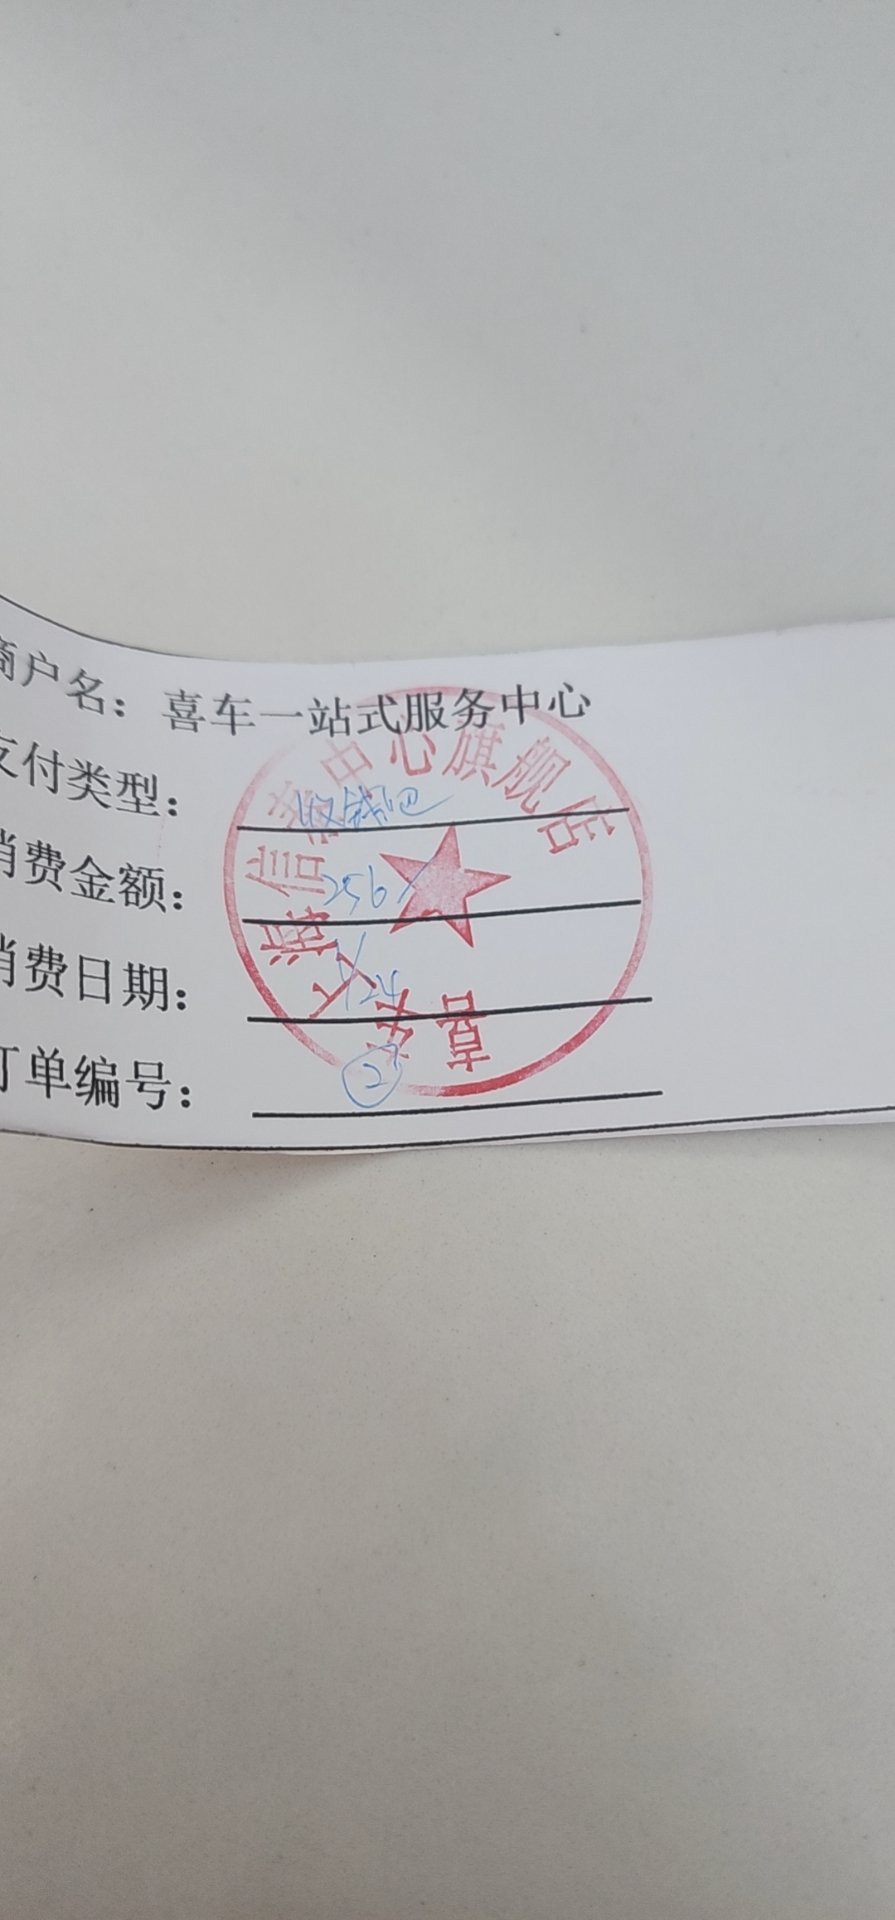 商户名：喜车一站式服务中心
支付类型：收钱吧
消费金额：256
消费日期：
订单编号：②
中心旗舰店